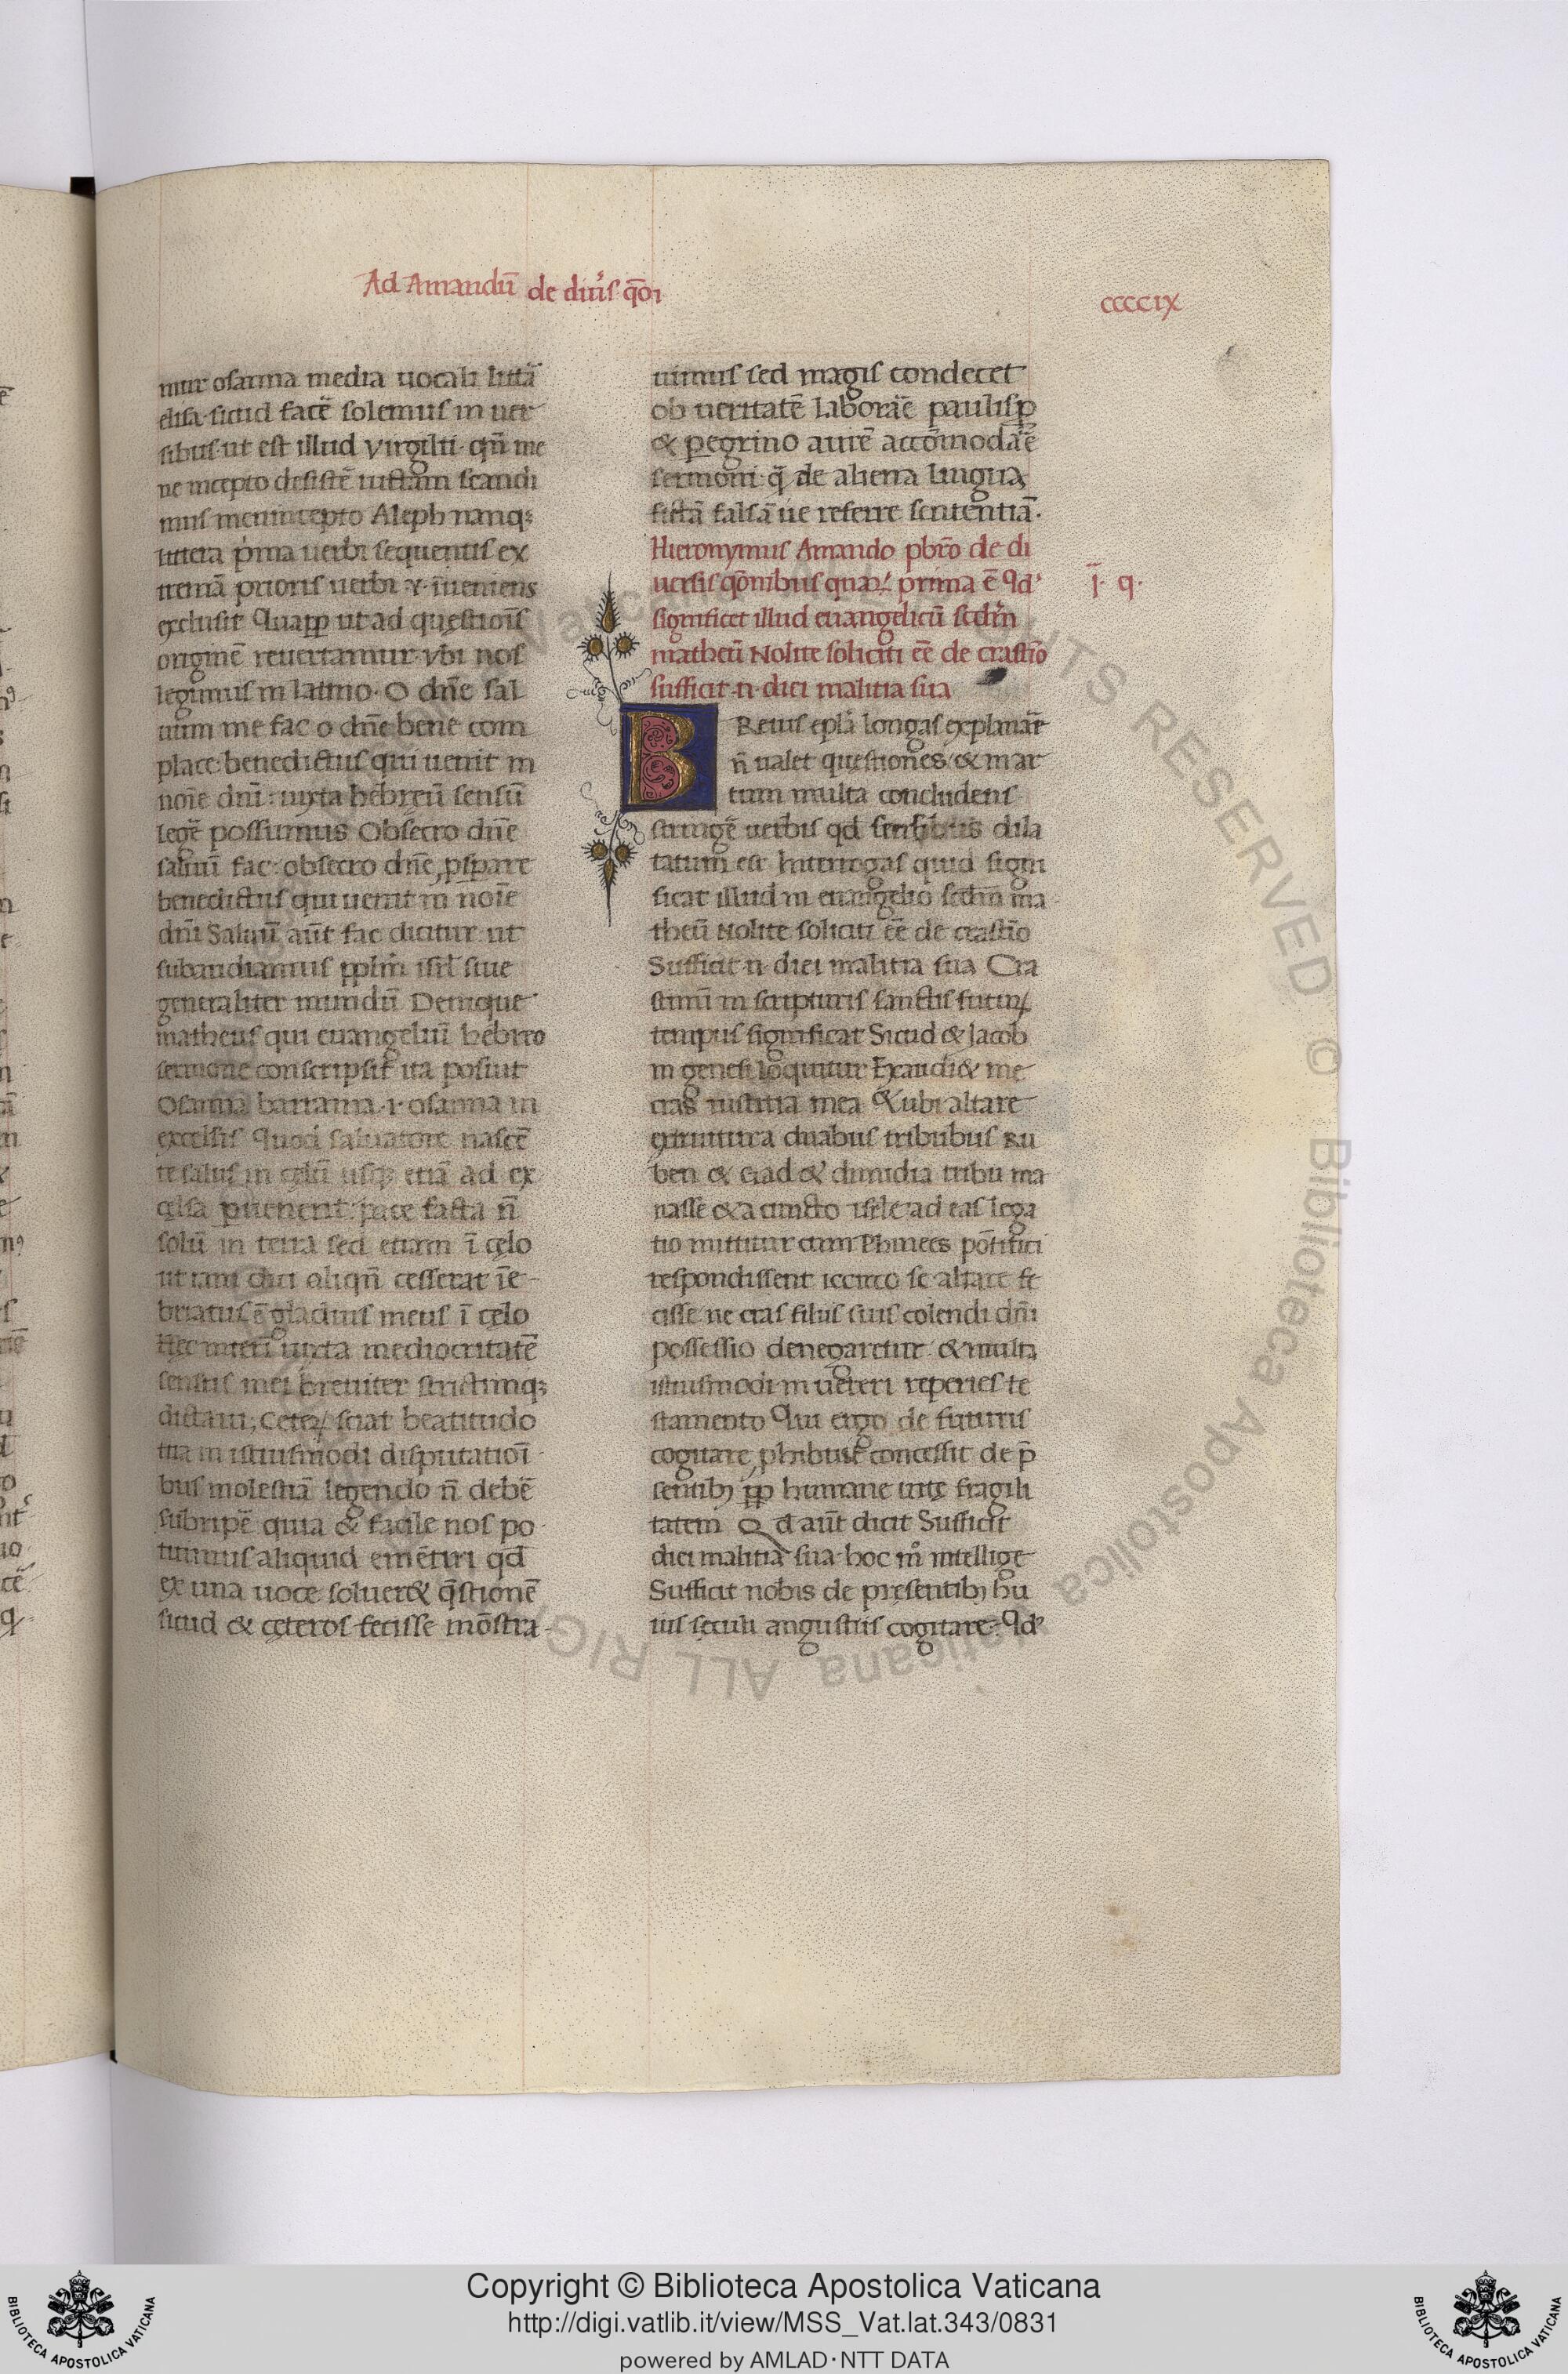 Ad Amandū de diu̾s q̄oı
ccccıx
mur osanna media uocali littā
elisa sicud facē̾ solemus in uer
sibus ut est illud Virgilii qn̄ me
ne incepto desistē̾ uictam scandi
mus menincepto Aleph nanq;
littera p̾ma uerbi sequentis ex
tremā prioris uerbi ⁊ īueniens
exclusit Quaꝓp ut ad questiōis
originē reuertamur vbi nos
legimus in latino O dn̄e sal
uum me fac o dn̄e bene com
place benedictus qui uenit in
noīe dn̄i iuxta hebreū sensū
legē possumus Obsecro dn̄e
saluū fac obsecro dn̄e ꝓspare
benedictus qui uenit in noīe
dn̄i Saluū aūt fac dicitur ut
subaudiamus pplm̄ isrl̄ siue
generaliter mundū Denique
matheus qui euangeliū hebreo
sermone conscripsit ita posuit
Osanna barrama ·ı· osanna in
excelsis Quod saluatore nascē
te salus in cęlū usq; etiā ad ex
cęlsa puenerit pace facta n̄
solū in terra sed etiam ī cęlo
ut iam dici aliqn̄ cesserat īe
briatus ē gladius meus ī cęlo
Hęc interī iuxta mediocritatē
sensus mei breuiter strictimq;
dictaui, Ceteꝝ sciat beatitudo
tua in istiusmodi disputatioī
bus molestiā legendo n̄ debē
subripē quia & facile nos po
tuimus aliquid emētiri qd̄
ex una uoce soluer& q̄stionē
sicud & cęteros fecisse mōstra
uimus sed magis condecet
ob ueritatē laborāe paulisꝑ
& pegrino aurē accōmodāe
sermoni q̄ de aliena lingua
fictā falsā ue referre sententiā.
Hieronymus Amando pbr̄o de di
uersis qōnibus quaꝝ prima ē qd'
significet illud euangelicū scdm̄
matheū Nolite soliciti eē de crastīo
sufficit n̄ diei malitia sua
ī· q·
BReuis epl̄a longas explanāe
n̄ ualet questiones & in ar
tum multa concludens
stringē uerbis qd sensibus dila
tatum est Interrogas quid signi
ficat illud in euangelio scdm̄ ma
theū Nolite soliciti eē de crastīo
Sufficit n̄ diei malitia sua Cra
stinū in scripturis sanctis futuꝝ
tempus significat Sicud & Jacob
in genesi loquitur Exaudi& me
cras iustitia mea & ubi altare
extruitura duabus tribubus Ru
ben & Gad & dimidia tribu ma
nasse & a cuncto isrl̄e ad eas lega
tio mittitur cum Phinees pōtifici
respondissent iccirco se altare fe
cisse ne cras filiis suis colendi dn̄i
possessio denegaretur & multa
istiusmodi in ueteri reperies te
stamento Qui ergo de futuris
cogitare phibuit concessit de p̄
sentib; ꝓp humane uitę fragili
tatem Q d aūt dicit Sufficit
diei malitia sua hoc m̊ intellige
Sufficit nobis de pręsentib; hu
ius seculi angustiis cogitare Qd'
Copyright © Biblioteca Apostolica Vaticana
http://digi.vatlib.it/view/MSS_Vat.lat.343/0831
powered by AMLAD·NTT DATA
BIBLIOTECA APOSTOLICA VATICANA
BIBLIOTECA APOSTOLICA VATICANA